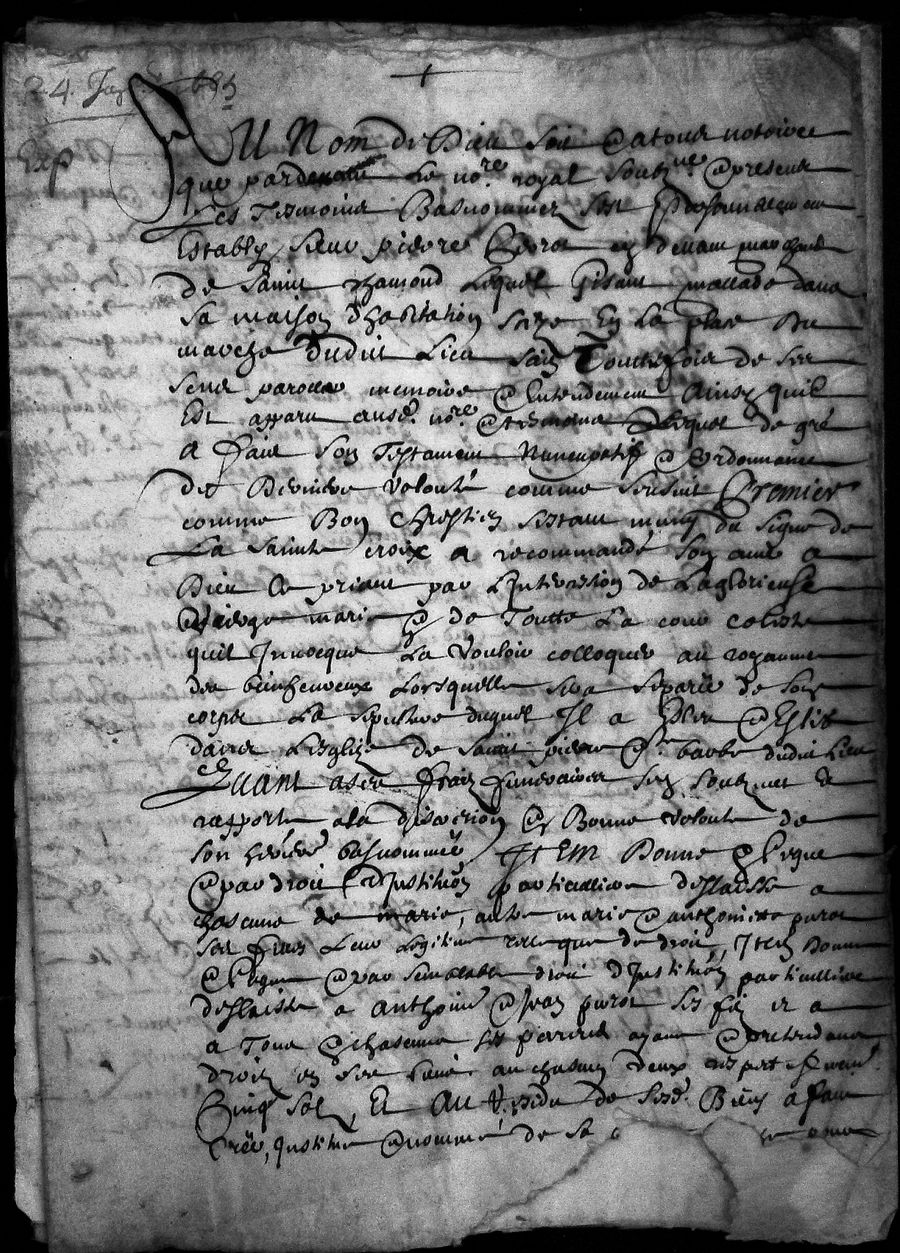 24. Jan
Exp
AU Nom de Dieu soit @ atous notoire
que pardevant Le no.re royal soubz.né @ presens
Les Tesmoins Basnommez sest
Estably sieur pierre marchand
de Sainct chamond Lequel Gisant mallade dans
sa maison d'habitation size En La place Du
marche dudict Lieu sain Touttesfois de ses
sens parolle memoire @ Entendement Ainsy quil
Est apparu ausd. no.re @ tesmoins Lequel de gré
a faict son Testament Nuncupatif @ Ordonnance
de Derniere volonté comme sensuit Premier
comme Bon Chrestien sestant muny du signe de
La saincte croix a recommandé son ame a
Dieu Le priant par LIntercession de La glorieuse
Vierge marie @ de Toutte La cour celeste
quil Jnvocque La vouloir colloquer au royaume
des bienheureux Lorsquelle sera separée de son
corps La sepulture duquel Jl a Esleu @ Eslit
dans L'eglize de sainct pierre @ S.te barbe dudict Lieu
Quant ases fraiz funeraires sen soubzmet &
rapporte ala discretion @ Bonne volonté de
son heritier basnommée JtEM Donne @ Legue
@ par droit d'Jnstitution particulliere delaisse a
chascune de marie, autre marie @ anthoinette
ses filles Leur Legitime telle que de droit, Jtem Donne
@ Legue @ par semblable droit d'Jnstitution particulliere
delaisse a anthoine @ Jean ses filz et a
a Tous @ chascuns ses parens ayans @ pretendans
droit en ses biens au chascun deux
Cinq solz, Et AU Residu de sesd. Biens a faict
Creé, institué @ nommé de sa